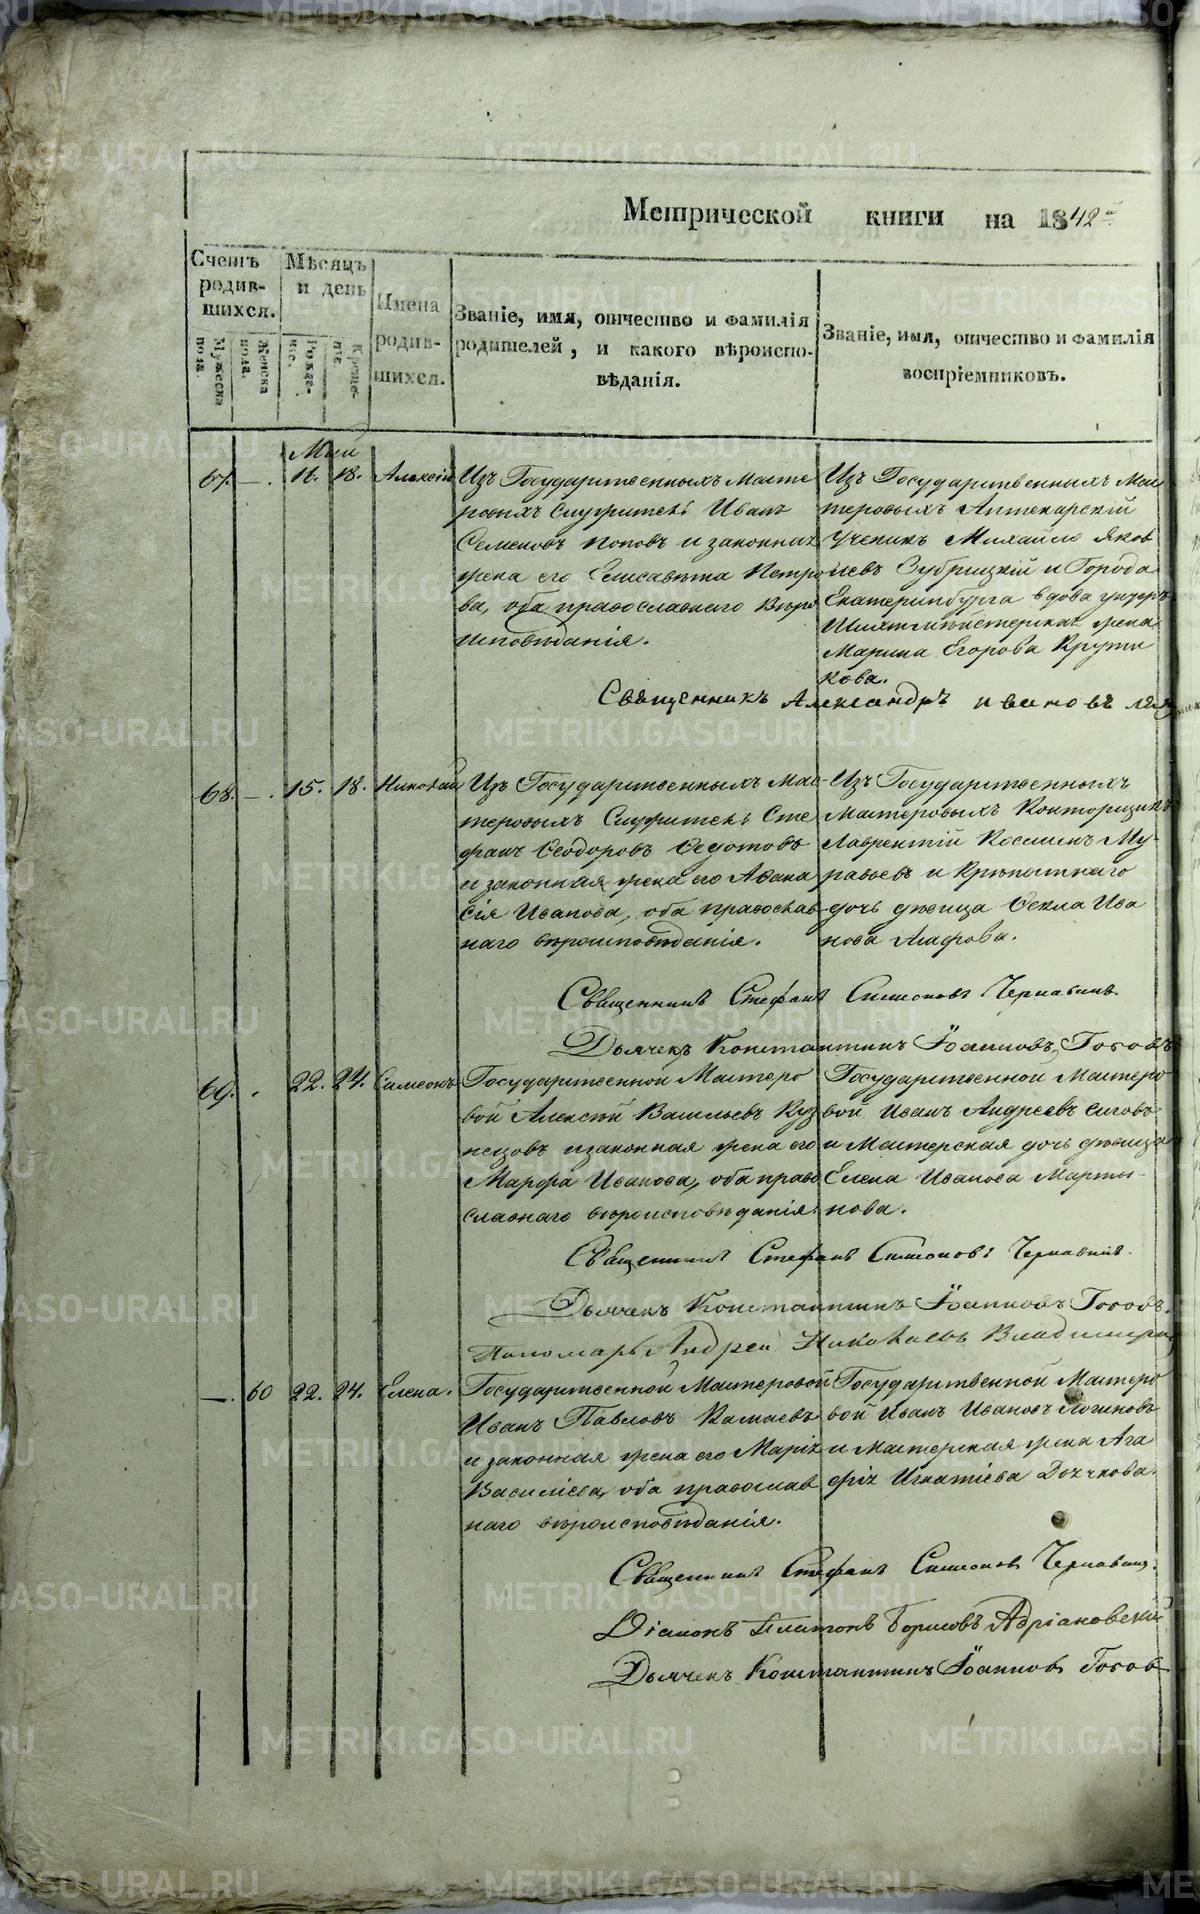 Метрической книги на 1842й
Счетъ родившихся.
Мужеска пола.
Женска пола.
Мѣсяцъ и день
Рожденіе.
Крещеніе.
Имена родившихся.
Званіе, имя, отчество и фамилія родителей, и какого вѣроисповѣданія.
Званіе, имя, отчество и фамилія воспріемниковъ.
Май
67. —. 16. 18. Алексій
Изъ Государственныхъ Масте
ровыхъ Служитель Иванъ
Семеновъ Поповъ и законная
жена его Елисавета Петро
ва, оба православнаго Вѣро
исповѣданія.
Изъ Государственныхъ Мас
теровыхъ Аптекарскій
Ученикъ Михайло Яков
левъ Зубрицкій и Города
Екатеринбурга вдова унтеръ
Шихтмейстерская жена
Марина Егорова Крути
кова.
Священникъ Александръ Ивановъ
68. —. 15. 18. Николай
Изъ Государственныхъ Мас-
теровыхъ Служитель Сте
фанъ Ѳеодоровъ Ѳедотовъ
и законная жена его Аѳана
сія Иванова, оба православ
наго вѣроисповѣданія.
Изъ Государственныхъ
Мастеровыхъ Конторщикъ
Лаврентій Косминъ Му-
равьевъ и Крѣпостнаго
дочь дѣвица Ѳекла Ива
нова Агафова.
Священникъ Стефанъ Симеоновъ Чернавинъ.
Дьячекъ Константинъ Іоанновъ Топовъ
69. . 22. 24. Симеонъ
Государственной Мастеро
вой Алексѣй Васильевъ Куз
нецовъ и законная жена его
Марфа Иванова, оба право
славнаго вѣроисповѣданія.
Государственной Мастеро
вой Иванъ Андреевъ Сиговъ
и Мастерская дочь дѣвица
Елена Иванова Марты-
нова.
Священникъ Стефанъ Симеоновъ Чернавинъ.
Дьячекъ Константинъ Іоанновъ Топовъ.
Пономарь Андрей Николаевъ
—. 60 22. 24. Елена.
Государственной Мастеровой
Иванъ Павловъ Камаевъ
и законная жена его Марія
Василіева, оба православ
наго вѣроисповѣданія.
Государственной Мастеро
вой Иванъ Ивановъ Логиновъ
и Мастерская жена Ага
фія Игнатіева
Священникъ Стефанъ Симеоновъ Чернавинъ.
Діаконъ Платонъ Борисовъ Адріановскій
Дьячекъ Константинъ Іоанновъ Топовъ
METRIKI.GASO-URAL.RU